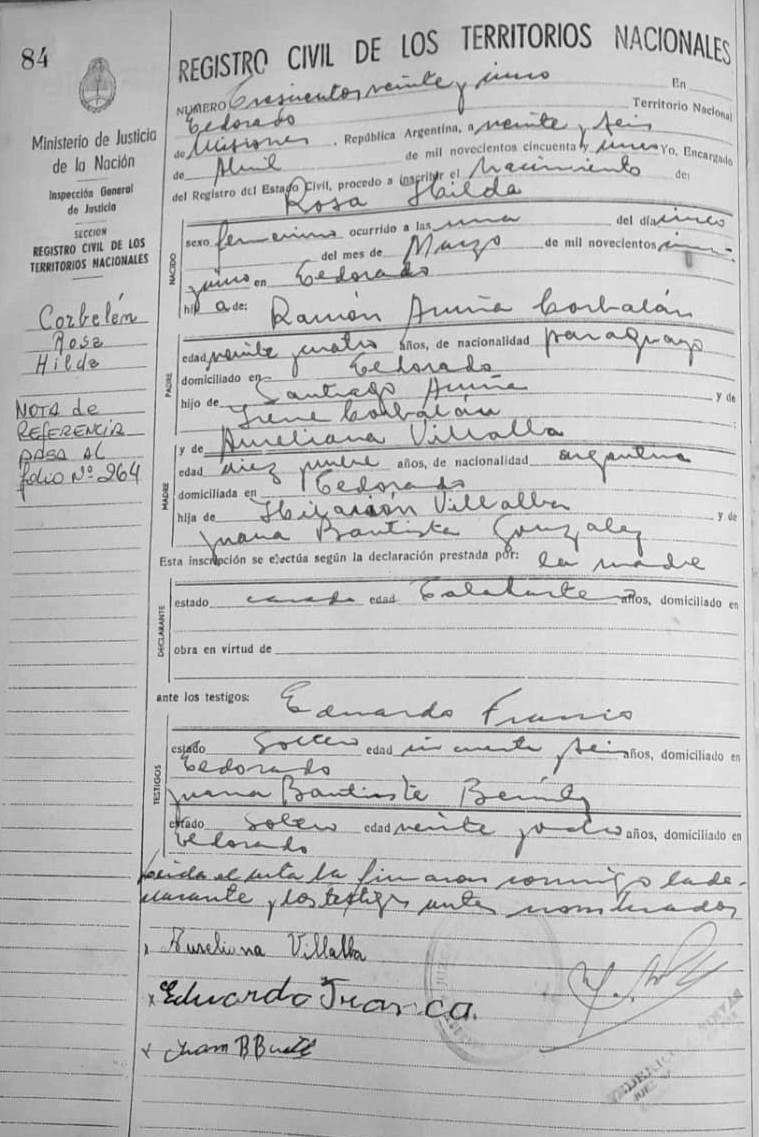 84
Ministerio de Justicia
de la Nación
Inspección General
de Justicia
SECCION
REGISTRO CIVIL DE LOS
TERRITORIOS NACIONALES
Corbelén
Rosa
Hilda
NOTA de
REFERENCIA
PASA AL
folio Nº 264
REGISTRO CIVIL DE LOS TERRITORIOS NACIONALES
NUMERO Trescientos veinte y uno En
Eldorado Territorio Nacional
de Misiones, República Argentina, a veinte y seis
de Abril de mil novecientos cincuenta y uno Yo, Encargado
del Registro del Estado Civil, procedo a inscribir el Nacimiento de:
Rosa Hilda
NACIDO
sexo femenino ocurrido a las una del día cinco
del mes de Marzo de mil novecientos
en Eldorado
hij a de: Ramón Acuña Corbalán
PADRE
edad veinte cuatro años, de nacionalidad paraguayo
domiciliado en Eldorado
hijo de Santiago Acuña y de
Irene Corbalán
MADRE
y de Aureliana Villalba
edad diez años, de nacionalidad argentina
domiciliada en Eldorado
hija de Hilarión Villalba y de
Juana Bautista Gonzalez
Esta inscripción se efectúa según la declaración prestada por: la madre
DECLARANTE
estado casada edad años, domiciliado en
obra en virtud de
ante los testigos:
Eduardo Franco
TESTIGOS
estado Soltero edad cincuenta seis años, domiciliado en
Eldorado
Juana Bautista
estado Soltero edad veinte años, domiciliado en
Eldorado
Leida el acta la firmaron conmigo la de-
clarante y los testigos antes nombrados
x Aureliana Villalba
x Eduardo Franco.
x Juan B